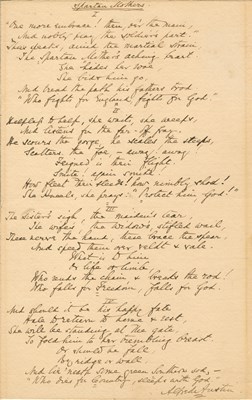 Spartan Mothers
I
"One more embrace! then, o'er the main,
And nobly play the soldier's part!"
Thus speaks, amid the martial strain,
The Spartan Mother's aching heart.
She hides her woe,
She bids him go,
And tread the path his fathers trod.
"Who fights for England, fights for God."
II
Helpless to help, she waits, she weeps,
And listens for the far-off fray.
He scours the gorge, he scales the steeps,
Scatters the foe - away! away!
Feigned is their flight!
Smite! again smite!
How fleet their steeds! how nimbly shod!
She kneels, she prays: "Protect him, God!"
III
The Sister's sigh, the maiden's tear,
The wife's, the widow's, stifled wail,
These nerve the hand, these brace the spear,
And speed them over veldt & vale.
What is to him
Or life or limb,
Who rends the chain & breaks the rod!
Who falls for Freedom, falls for God.
IV
And should it be his happy fate
Hale to return to home & rest,
She will be standing at the gate,
To fold him to her trembling breast.
Or should he fall
By ridge or wall,
And lie 'neath some green Southern sod, -
"Who dies for Country, sleeps with God."
Alfred Austin